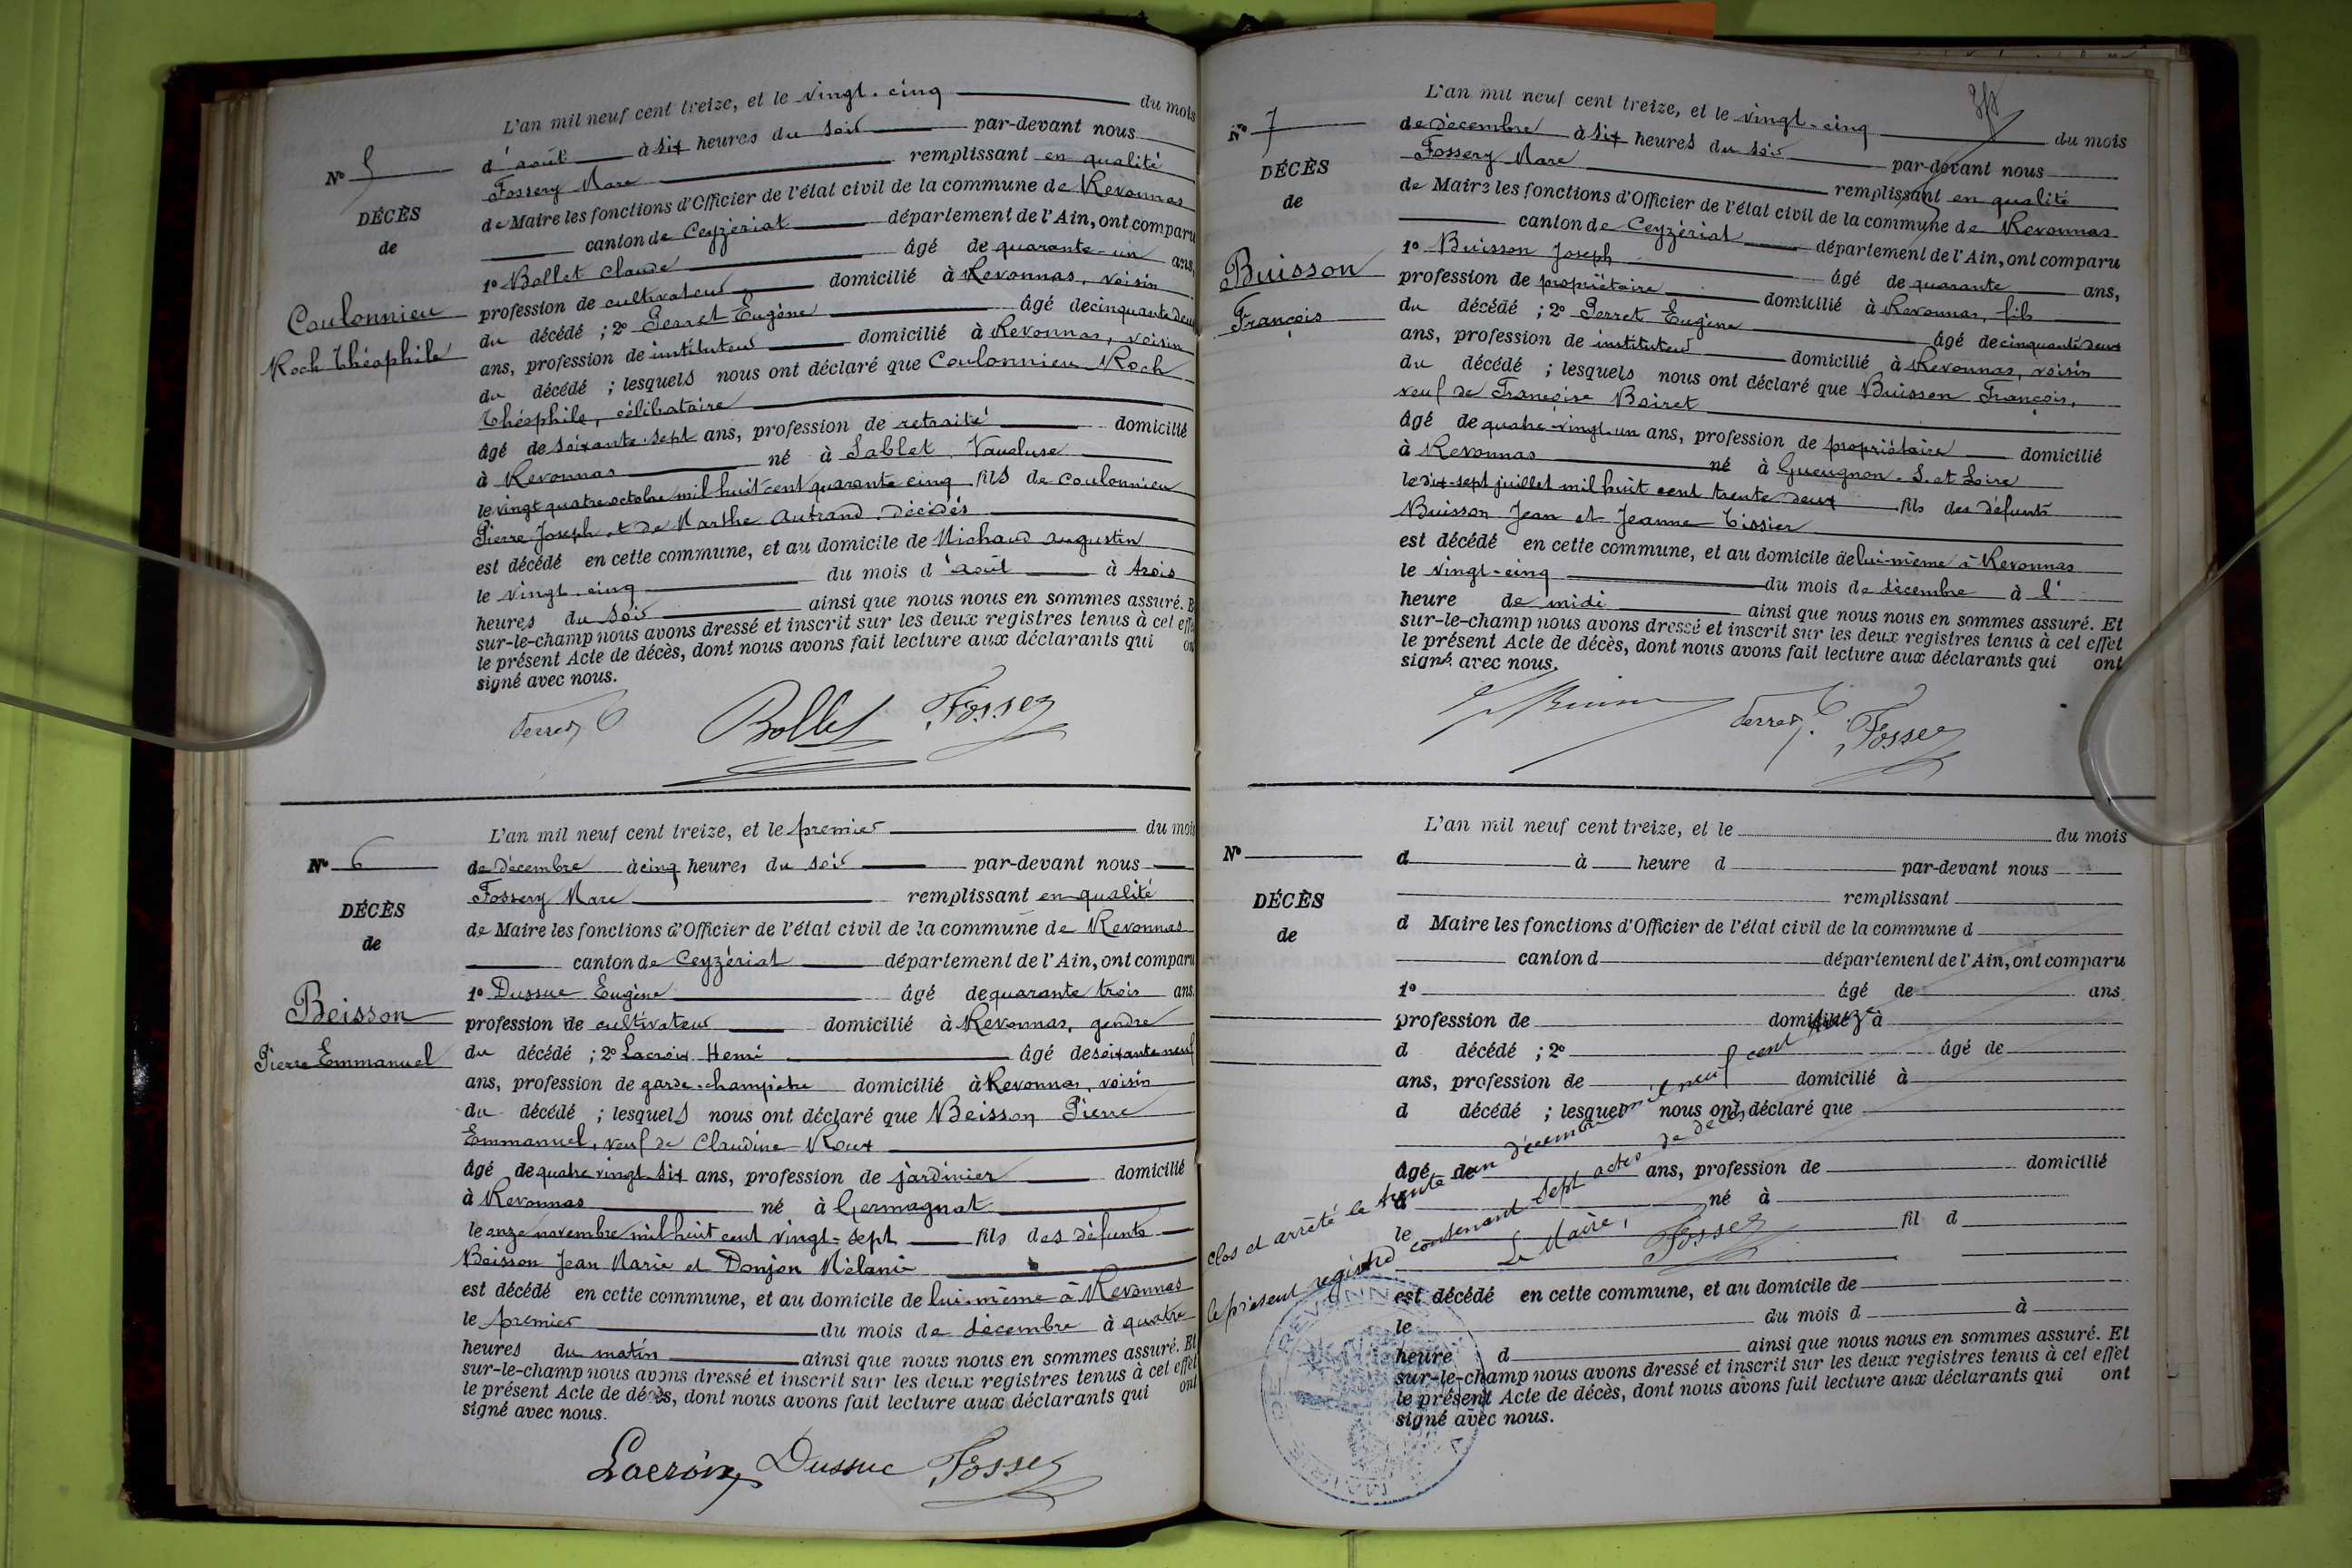 L'an mil neuf cent treize, et le vingt-cinq du mois
d'août à six heures du soir par-devant nous
Fossery Marc remplissant en qualité
de Maire les fonctions d'Officier de l'état civil de la commune de Revonnas
canton de Ceyzériat département de l'Ain, ont comparu
1º Bollet Claude âgé de quarante-un ans,
profession de cultivateur domicilié à Revonnas, voisin
du décédé ; 2º Perret Eugène âgé de cinquante deux
ans, profession de instituteur domicilié à Revonnas, voisin
du décédé ; lesquels nous ont déclaré que Coulonnieu Roch
Théophile, célibataire
âgé de soixante-sept ans, profession de retraité domicilié
à Revonnas né à Sablet, Vaucluse
le vingt quatre octobre mil huit cent quarante cinq fils de Coulonnieu
Pierre Joseph et de Marthe Autrand, décédés
est décédé en cette commune, et au domicile de Michaud Augustin
le vingt-cinq du mois d'août à trois
heures du soir ainsi que nous nous en sommes assuré. E
sur-le-champ nous avons dressé et inscrit sur les deux registres tenus à cet effe
le présent Acte de décès, dont nous avons fait lecture aux déclarants qui on
signé avec nous.
Nº 5
DÉCÈS
de
Coulonnieu
Roch Théophile
Perret E
Bollet
Fossery
L'an mil neuf cent treize, et le premier du mois
de décembre à cinq heures du soir par-devant nous
Fossery Marc remplissant en qualité
de Maire les fonctions d'Officier de l'état civil de la commune de Revonnas
canton de Ceyzériat département de l'Ain, ont comparu
1º Dussuc Eugène âgé de quarante trois ans.
profession de cultivateur domicilié à Revonnas, gendre
du décédé ; 2º Lacroix Henri âgé de soixante neuf
ans, profession de garde-champêtre domicilié à Revonnas, voisin
du décédé ; lesquels nous ont déclaré que Beisson Pierre
Emmanuel, veuf de Claudine Roux
âgé de quatre vingt six ans, profession de jardinier domicilié
à Revonnas né à Germagnat
le onze novembre mil huit cent vingt-sept fils des défunts
Beisson Jean Marie et Donjon Mélanie
est décédé en cette commune, et au domicile de lui-même à Revonnas
le premier du mois de décembre à quatre
heures du matin ainsi que nous nous en sommes assuré. Et
sur-le-champ nous avons dressé et inscrit sur les deux registres tenus à cet effet
le présent Acte de décès, dont nous avons fait lecture aux déclarants qui ont
signé avec nous.
Nº 6
DÉCÈS
de
Beisson
Pierre Emmanuel
Lacroix Dussuc Fossery
L'an mil neuf cent treize, et le vingt-cinq du mois
de décembre à six heures du soir par-devant nous
Fossery Marc remplissant en qualité
de Maire les fonctions d'Officier de l'état civil de la commune de Revonnas
canton de Ceyzériat département de l'Ain, ont comparu
1º Buisson Joseph âgé de quarante ans,
profession de propriétaire domicilié à Revonnas, fils
du décédé ; 2º Perret Eugène âgé de cinquante deux
ans, profession de instituteur domicilié à Revonnas, voisin
du décédé ; lesquels nous ont déclaré que Buisson François,
veuf de Françoise Boiret
âgé de quatre-vingt-un ans, profession de propriétaire domicilié
à Revonnas né à Gueugnon. S. et Loire
le dix-sept juillet mil huit cent trente deux fils des défunts
Buisson Jean et Jeanne Tissier
est décédé en cette commune, et au domicile de lui-même à Revonnas
le vingt-cinq du mois de décembre à l'
heure de midi ainsi que nous nous en sommes assuré. Et
sur-le-champ nous avons dressé et inscrit sur les deux registres tenus à cet effet
le présent Acte de décès, dont nous avons fait lecture aux déclarants qui ont
signé avec nous.
Nº 7
DÉCÈS
de
Buisson
François
Perret E.
Fossery
L'an mil neuf cent treize, et le du mois
d à heure d par-devant nous
remplissant
d Maire les fonctions d'Officier de l'état civil de la commune d
canton d département de l'Ain, ont comparu
1º âgé de ans
profession de domicilié à
d décédé ; 2º âgé de
ans, profession de domicilié à
d décédé ; lesquel nous ont déclaré que
âgé de ans, profession de domicilié
à né à
le fil d
est décédé en cette commune, et au domicile de
le du mois d à
heure d ainsi que nous nous en sommes assuré. Et
sur-le-champ nous avons dressé et inscrit sur les deux registres tenus à cet effet
le présent Acte de décès, dont nous avons fait lecture aux déclarants qui ont
signé avec nous.
Nº
DÉCÈS
de
clos et arrêté le trente un décembre mil neuf cent treize
le présent registre contenant sept actes de décès
Le Maire,
Fossery
MAIRIE DE REVONNAS